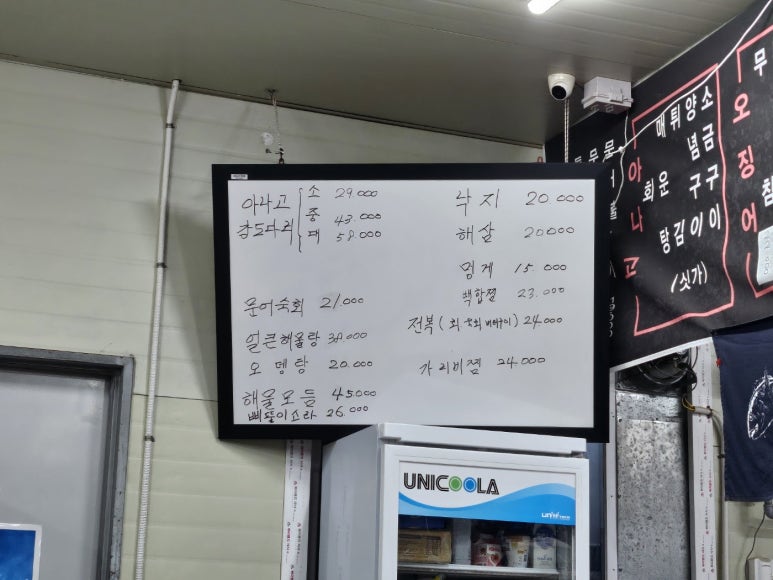 아나고
감도다리
소 29.000
중 43.000
대 58.000
문어숙회 21.000
얼큰해물탕 38.000
오뎅탕 20.000
해물모듬 45.000
삐뚤이소라 26.000
낙지 20.000
해삼 20000
멍게 15.000
백합찜 23.000
전복(회 숙회 버터구이) 24.000
가리비찜 24.000
아나고
소금구이
양념구이
튀김
매운탕
회
(싯가)
오징어
무
UNICOOLA